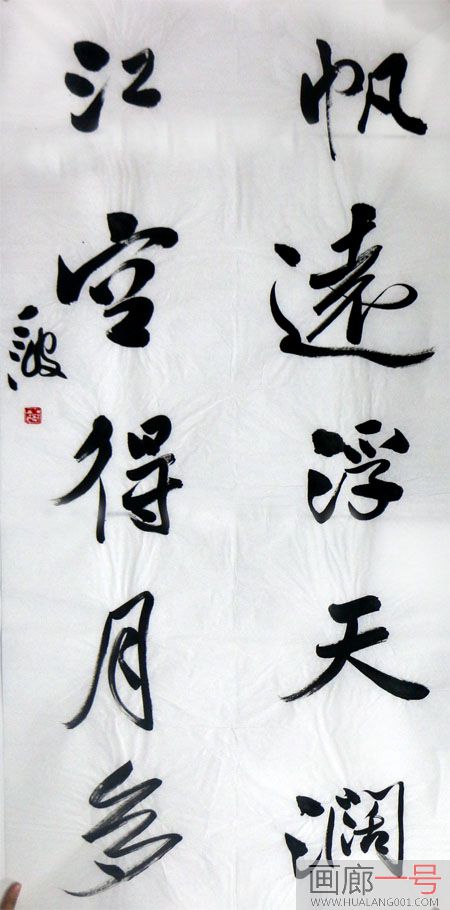 帆遠浮天濶
江空得月多
画廊一号
WWW.HUALANG001.COM